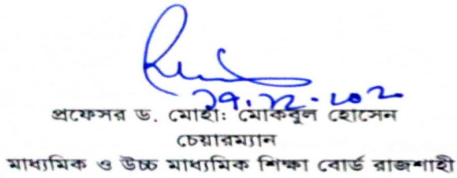 ২৭.১২.২০২০
প্রফেসর ড. মোহাঃ মোকবুল হোসেন
চেয়ারম্যান
মাধ্যমিক ও উচ্চ মাধ্যমিক শিক্ষা বোর্ড রাজশাহী